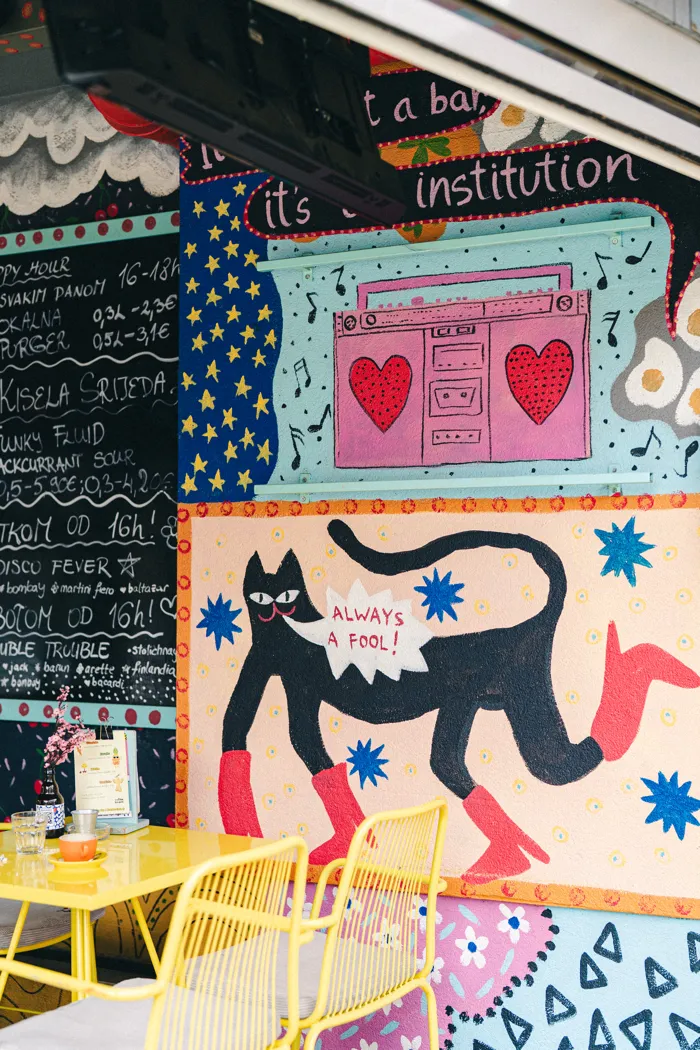 t a bar,
it's institution
ALWAYS
A FOOL!
PPY HOUR 16-18h
SVAKIM DANOM
OKALNA 0,3L-2,3€
PURGER 0,5L-3,1€
KISELA SRIJEDA
UNKY FLUID
ACKCURRANT SOUR
0,5-5,90€;0,3-4,20€
TKOM OD 16h!
DISCO FEVER
bombay martini fiero baltazar
BOTOM OD 16h!
UBLE TROUBLE stolichnay
jack barun arette finlandia
bombay bacardi